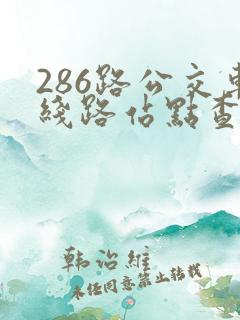 286路公交車
綫路佔點查
韩治維
未任同意禁止转载